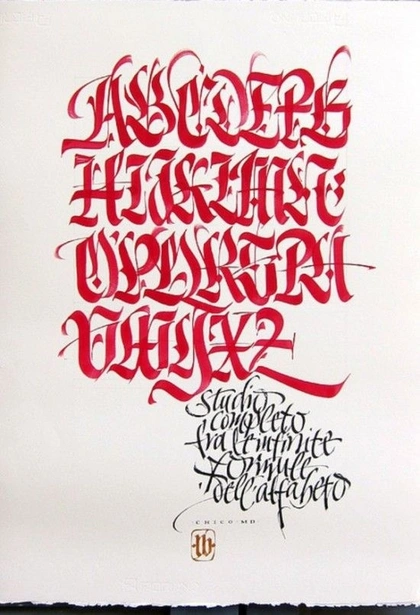 ABCDEFG
HIJKLMN
OPQRSTU
VWYXZ
Studio
completo
fra le infinite
formule
dell'alfabeto
CHICO·MD